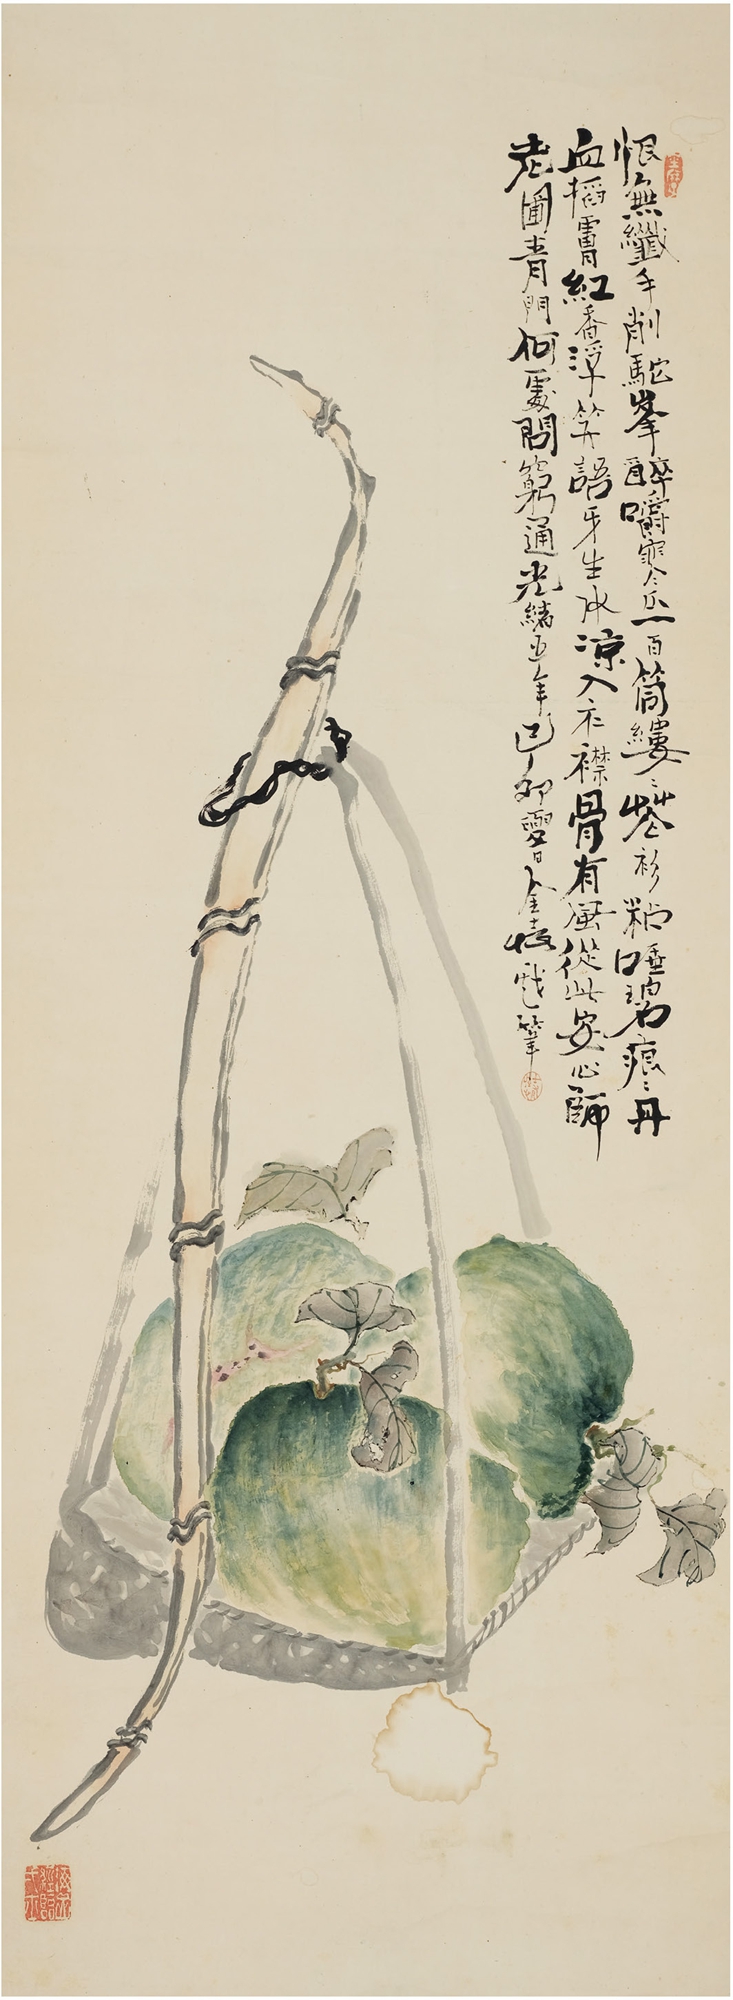 恨無纖手削駝峯醉嚼寒瓜一百筒縷〻花衫粘唾碧痕〻丹
血搯膚紅香浮笑語牙生水凉入衣襟骨有風從此安心師
老圃青門何處問窮通光緒五年己卯夏日金戲筆